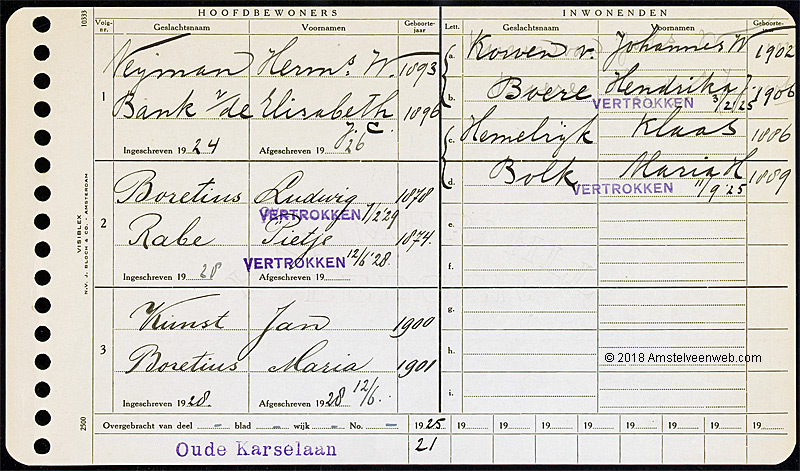 HOOFDBEWONERS
INWONENDEN
Volg-nr. Geslachtsnaam Voornamen Geboorte-jaar
Lett. Geslachtsnaam Voornamen Geboorte-jaar
1
Neyman Herms. W. 1893
Bank v/de Elisabeth 1896
J. C.
Ingeschreven 1924 Afgeschreven 1926
2
Boretius Ludwig 1878
VERTROKKEN 1/2'29
Rabe Pietje 1874
VERTROKKEN 12/6'28
Ingeschreven 1928 Afgeschreven 19
3
Kunst Jan 1900
Boretius Maria 1901
Ingeschreven 1928. Afgeschreven 1928 12/6.
a. Kowen v. Johannes W 1902
b. Boere Hendrika J. 1906
VERTROKKEN 3/2/25
c. Hemelrijk Klaas 1886
d. Bolk Maria H 1889
VERTROKKEN 11/9'25
e.
f.
g.
h.
i.
© 2018 Amstelveenweb.com
Overgebracht van deel – blad – wijk – No. – 1925 19 19 19 19 19 19 19 19 19
Oude Karselaan 21
10333
VISIBLEX
N.V. J. BLOCH & CO. - AMSTERDAM
2500